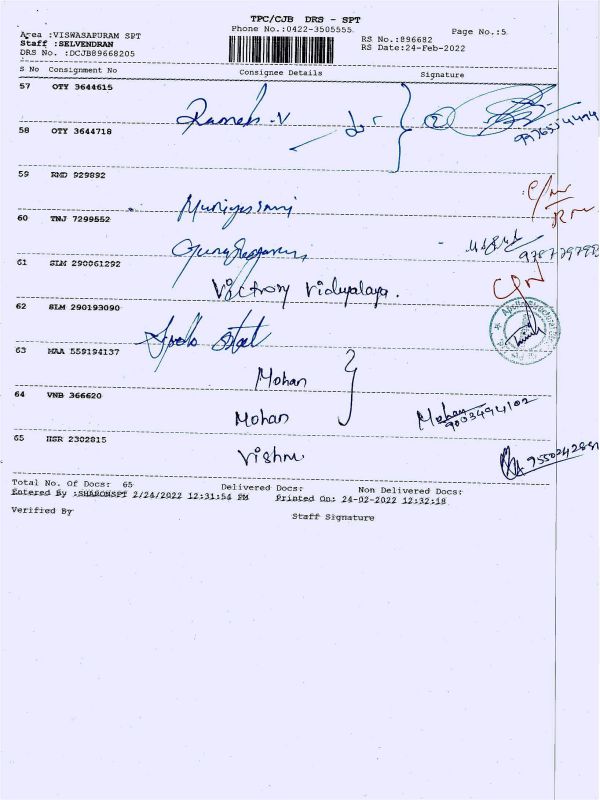 TPC/CJB DRS - SPT
Area :VISWASAPURAM SPT
Phone No.:0422-3505555
Page No.:5
Staff :SELVENDRAN
RS No.:896682
DRS No. :DCJB89668205
RS Date:24-Feb-2022
S No Consignment No Consignee Details Signature
57 OTY 3644615
Ramesh.V
58 OTY 3644718
59 RMD 929892
60 TNJ 7299552
61 SLM 290061292
Victrory Vidyalaya.
62 SLM 290193090
63 MAA 559194137
Mohan
64 VNB 366620
Mohan
Mohan
9003494102
65 HSR 2302815
Vishnu
Total No. Of Docs: 65 Delivered Docs: Non Delivered Docs:
Entered By :SHARONSPT 2/24/2022 12:31:54 PM Printed On: 24-02-2022 12:32:18
Verified By
Staff Signature